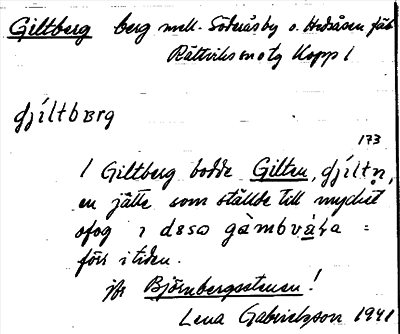 Giltberg berg mell. Söderåsby o. Hedsåsen fäb
Rättviks sn otg Kopp l
djíltbɛrg
173
I Giltberg bodde Gilten, djíltn̥,
en jätte som ställde till mycket
ofog i dɛsɷ gàmbváɽa =
förr i tiden.
jfr Björnbergsstenen!
Lena Gabrielsson 1941